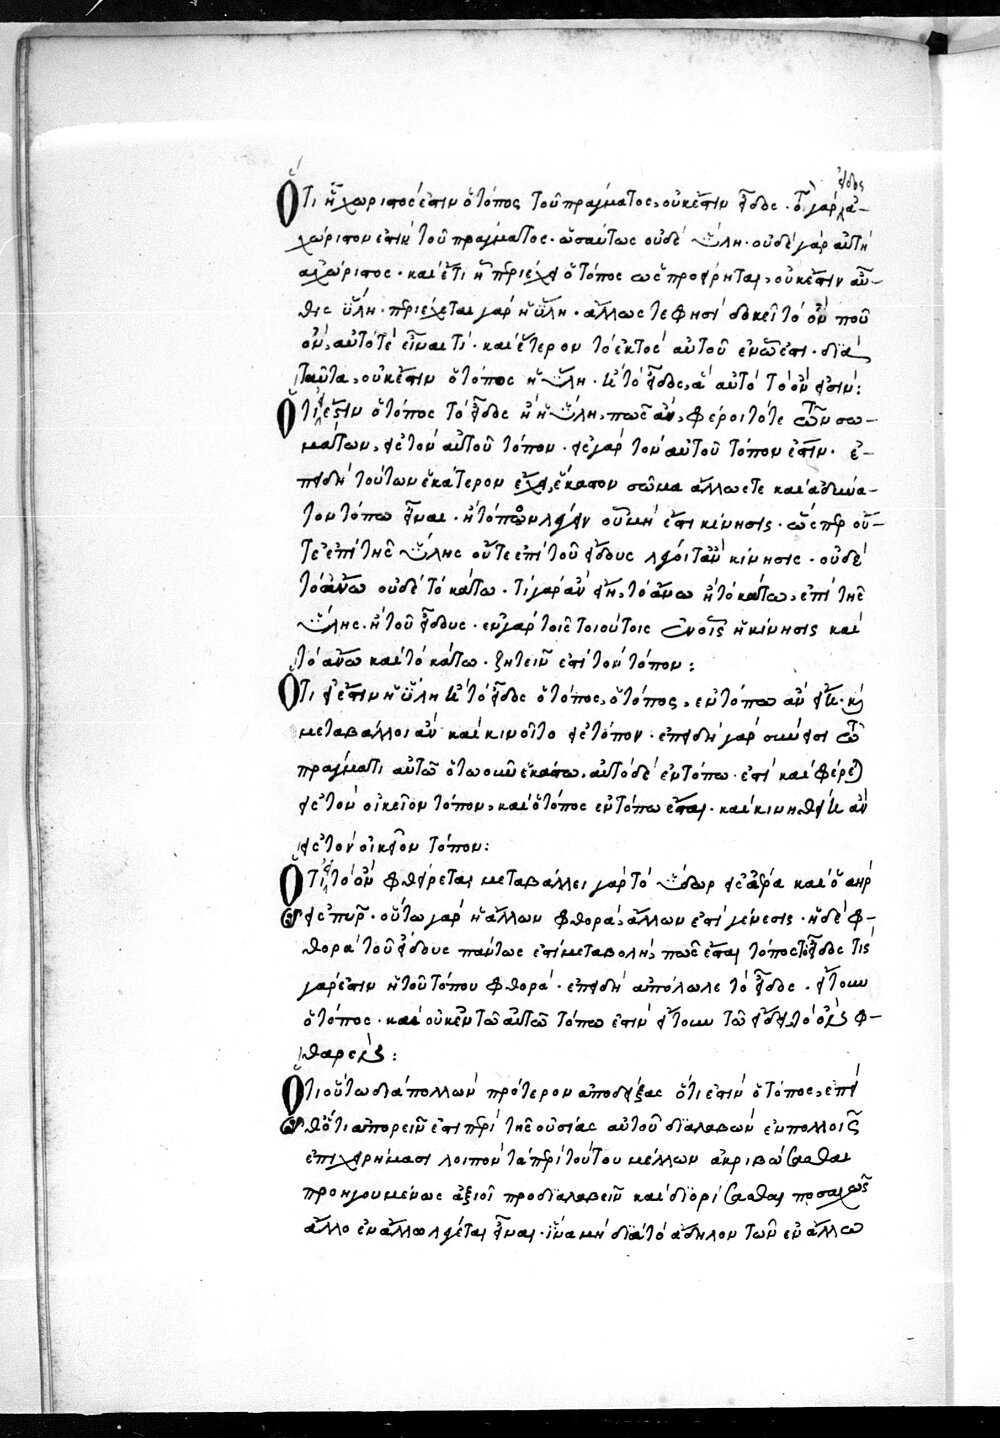 εἶδος
Ὅτι ᾗ χωριστός ἐστιν ὁ τόπος τοῦ πράγματος, οὐκ ἔστιν εἶδος · τὸ γὰρ ἀ-
χώριστον ἐστὶ τοῦ πράγματος · ὡσαύτως οὐδὲ ὕλη · οὐδὲ γὰρ αὐτὴ
ἀχώριστος · καὶ ἔτι ᾗ περιέχει ὁ τόπος ὡς προείρηται, οὐκ ἔστιν αὖ-
θις ὕλη · περιέχεται γὰρ ἡ ὕλη · ἄλλως τέ φησι δοκεῖ τὸ ὂν που
ὂν, αὐτό τέ εἶναι τί · καὶ ἕτερον τὸ ἐκτὸς αὐτοῦ ἐν ᾧ ἐστι · διὰ
ταῦτα, οὐκ ἔστιν ὁ τόπος ἡ ὕλη · καὶ τὸ εἶδος, ἃ αὐτὸ τὸ ὄν εἰσιν :
Ὅτι εἰ ἔστιν ὁ τόπος τὸ εἶδος ἢ ἡ ὕλη, πῶς ἂν, φέροιτό τε τῶν σω-
μάτων, εἰς τὸν αὐτοῦ τόπον · εἰς γὰρ τὸν αὐτοῦ τόπον ἐστιν · ἐ-
πειδὴ τούτων ἑκάτερον ἔχει, ἕκαστον σῶμα ἄλλως τε καὶ ἀδύνα-
τον τόπω εἶναι · ἢ τόπον λέγειν οὗ μή ἐστι κίνησις · ὥσπερ οὔ-
τε ἐπὶ τῆς ὕλης οὔτε ἐπὶ τοῦ εἴδους λέγοιτ' ἂν κίνησις · οὐδὲ
τὸ ἄνω οὐδὲ τὸ κάτω · τί γὰρ ἂν εἴη, τὸ ἄνω ἢ τὸ κάτω, ἐπὶ τῆς
ὕλης · ἢ τοῦ εἴδους · ἐν γὰρ τοῖς τοιούτοις ἐν οἷς ἡ κίνησις καὶ
τὸ ἄνω καὶ τὸ κάτω · ζητεῖν ἐστὶ τὸν τόπον :
Ὅτι εἰ ἔστιν ἡ ὕλη καὶ τὸ εἶδος ὁ τόπος, ὁ τόπος, ἐν τόπω ἂν εἴη · καὶ
μεταβάλλοι ἂν καὶ κινοῖτο εἰς τόπον · ἐπειδὴ γὰρ σύνεστι τῶ
πράγματι αὐτῶ ὁτωοῦν ἑκάστω · αὐτὸ δὲ ἐν τόπω · ἐστὶ καὶ φέρεται
εἰς τὸν οἰκεῖον τόπον, καὶ ὁ τόπος ἐν τόπω ἔσται · καὶ κινηθείη ἂν
εἰς τὸν οἰκεῖον τόπον :
Ὅτι εἰ τὸ ὂν φθείρεται μεταβάλλει γὰρ τὸ ὕδωρ εἰς ἀέρα καὶ ὁ ἀὴρ
εἰς πῦρ · οὕτω γὰρ ἡ ἄλλων φθορὰ, ἄλλων ἐστὶ γένεσις · ἡ δὲ φ-
θορὰ τοῦ εἴδους πάντως ἐστὶ μεταβολὴ, πῶς ἔσται τόπος τὸ εἶδος τίς
γάρ ἐστιν ἡ τοῦ τόπου φθορά · ἐπειδὴ ἀπόλωλε τὸ εἶδος · ἤτοι
ὁ τόπος · καὶ οὐκ ἐν τῶ αὐτῶ τόπω ἐστὶν ἤτοι τῶ εἴδει, τὸ φ-
θαρέν :
Ὅτι οὕτω διὰ πολλῶν πρότερον ἀποδείξας ὅτι ἐστὶν ὁ τόπος, ἐπεὶ
θ' ὅτι ἀπορεῖν ἐστι περὶ τῆς οὐσίας αὐτοῦ διαλαβὼν ἐν πολλοῖς
ἐπιχειρήμασι λοιπὸν τὰ περὶ τούτου μέλλων ἀκριβώσασθαι
προηγουμένως ἀξιοῖ προδιαλαβεῖν καὶ διορίσασθαι ποσαχῶς
ἄλλο ἐν ἄλλω λέγεται εἶναι · ἵνα μὴ διὰ τὸ ἄδηλον τῶν ἐν ἄλλω